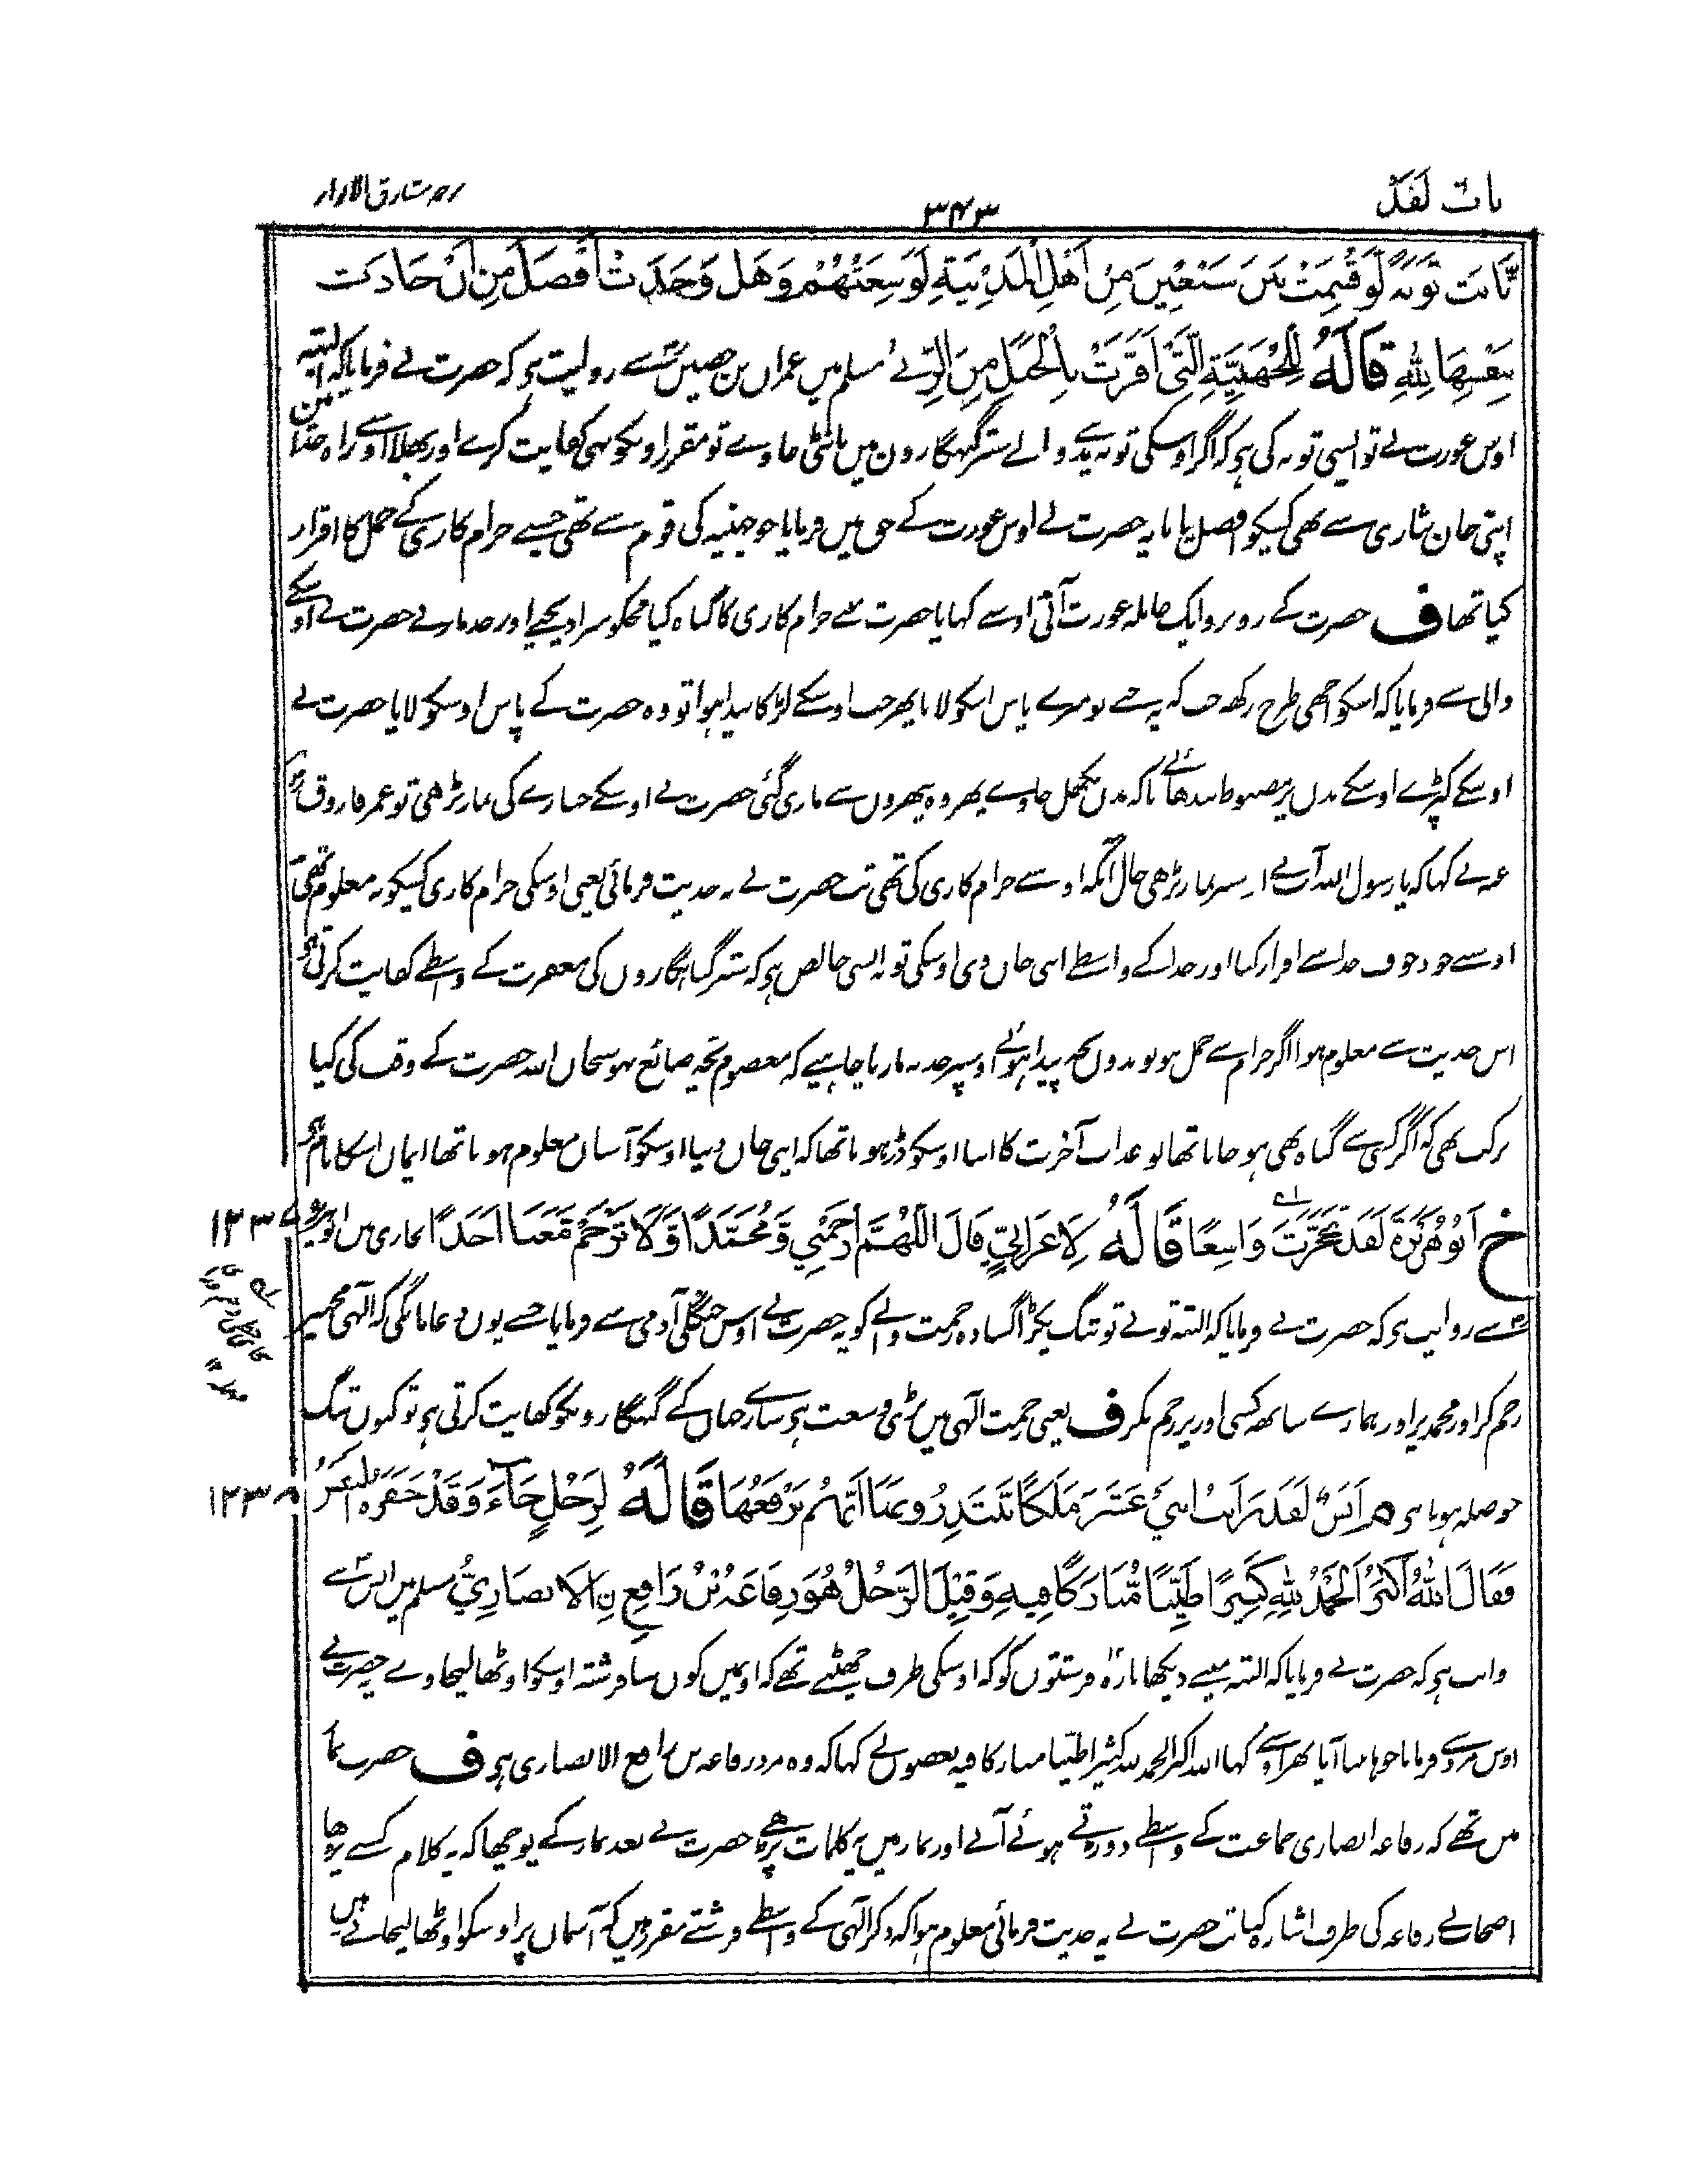 باب لقد
۳۴۳
ترجمہ مشارق الانوار
تَابَتْ تَوْبَةً لَوْ قُسِمَتْ بَيْنَ سَبْعِيْنَ مِنْ اَهْلِ الْمَدِيْنَةِ لَوَسِعَتْهُمْ وَهَلْ وَجَدَتْ اَفْضَلَ مِنْ اَنْ جَادَتْ
بِنَفْسِهَا لِلّٰهِ قَالَهٗ لِلْجُهَيْنِيَّةِ الَّتِيْ اَقَرَّتْ بِالْحَمْلِ مِنَ الزِّنٰى مسلم میں عمران بن حصین سے روایت ہی کہ حضرت نے فرمایا کہ البتہ
اوس عورت نے تو ایسی توبہ کی ہی کہ اگر اوسکی توبہ مدینے والے ستر گنہگارون میں بانٹی جاوے تو مقرر اونکو بھی کفایت کرے اور بھلا اوسنے راہ خدا میں
اپنی جان نثاری سے بھی کسیکو افضل پایا یہ حضرت نے اوس عورت کے حق میں فرمایا جو جہنیہ کی قوم سے تھی جسنے حرام کاری کے حمل کا اقرار
کیا تھا ف حضرت کے روبرو ایک حاملہ عورت آئی اوسنے کہا یا حضرت میں نے حرام کاری کا گناہ کیا مجکو سزا دیجیے اور حد مارئے حضرت نے اوسکے
والی سے فرمایا کہ اسکو اچھی طرح رکھ جب کہ یہ جنے تو میرے پاس اسکو لانا پھر جب اوسکے لڑکا پیدا ہوا تو وہ حضرت کے پاس اوسکو لایا حضرت نے
اوسکے کپڑے اوسکے بدن پر مضبوط بندھائے تاکہ بدن نہ کھل جاوے پھر وہ پتھروں سے ماری گئی حضرت نے اوسکے جنازے کی نماز پڑھی تو عمر فاروق رضی
عنہ نے کہا کہ یا رسول اللہ آپنے اسپر نماز پڑھی حال آنکہ اوسنے حرام کاری کی تھی تب حضرت نے یہ حدیث فرمائی یعنی اوسکی حرام کاری کسیکو نہ معلوم تھی
اوسنے خود خوف خدا سے اقرار کیا اور خدا کے واسطے اپنی جان دی اوسکی توبہ ایسی خالص ہی کہ ستر گناہگاروں کی مغفرت کے واسطے کفایت کرتی ہی
اس حدیث سے معلوم ہوا اگر حرام سے حمل ہو تو بدون بچہ پیدا ہوئے اوسپر حد نہ مارنا چاہیے کہ معصوم بچہ ضائع نہو سبحان اللہ حضرت کے وقت کی کیا
برکت تھی کہ اگر کسی سے گناہ بھی ہو جاتا تھا تو عذاب آخرت کا ایسا اوسکو ڈر ہوتا تھا کہ اپنی جان دینا اوسکو آسان معلوم ہوتا تھا ایمان اسکا نام ہی
خ اَبُوْهُرَيْرَةَ لَقَدْ تَحَجَّرْتَ وَاسِعًا قَالَهٗ لِاَعْرَابِيٍّ قَالَ اَللّٰهُمَّ ارْحَمْنِيْ وَمُحَمَّدًا وَّلَا تَرْحَمْ مَعَنَا اَحَدًا بخاری میں ابو ہریرہ ۱۲۳۷
سے روایت ہی کہ حضرت نے فرمایا کہ البتہ تونے تو تنگ پکڑا کشادہ رحمت والے کو یہ حضرت نے اوس جنگلی آدمی سے فرمایا جسنے یوں دعا مانگی کہ الہی مجھپر
رحم کر اور محمد پر اور ہمارے ساتھ کسی اور پر رحم نکر ف یعنی رحمت الہی میں بڑی وسعت ہی سارے جہان کے گنہگارونکو کفایت کرتی ہی تو کیوں تنگ
حوصلہ ہوتا ہی م اَنَسٌ لَقَدْ رَاَيْتُ اثْنَيْ عَشَرَ مَلَكًا يَّبْتَدِرُوْنَهَا اَيُّهُمْ يَرْفَعُهَا قَالَهٗ لِرَجُلٍ جَآءَ وَقَدْ حَفَزَهُ النَّفَسُ ۱۲۳۸
فَقَالَ اَللّٰهُ اَكْبَرُ اَلْحَمْدُ لِلّٰهِ كَثِيْرًا طَيِّبًا مُّبَارَكًا فِيْهِ وَقِيْلَ الرَّجُلُ هُوَ رِفَاعَةُ بْنُ رَافِعِ نِ الْاَنْصَارِيُّ مسلم میں انس سے
روایت ہی کہ حضرت نے فرمایا کہ البتہ مینے دیکھا بارہ فرشتوں کو کہ اوسکی طرف جھپٹتے تھے کہ اونمیں کون سا فرشتہ اوسکو اوٹھا لیجاوے یہ حضرت نے
اوس مرد سے فرمایا جو ہانپتا آیا پھر اوسنے کہا اللہ اکبر الحمد للہ کثیرا طیبا مبارکا فیہ بعضوں نے کہا کہ وہ مرد رفاعہ بن رافع الانصاری ہی ف حضرت نماز
میں تھے کہ رفاعہ انصاری جماعت کے واسطے دوڑتے ہوئے آئے اور نماز میں یہ کلمات پڑھے حضرت نے بعد نماز کے پوچھا کہ یہ کلام کسنے پڑھا
اصحاب نے رفاعہ کی طرف اشارہ کیا تب حضرت نے یہ حدیث فرمائی معلوم ہوا کہ ذکر الہی کے واسطے فرشتے مقرر ہیں کہ آسمان پر اوسکو اوٹھا لیجاتے ہیں